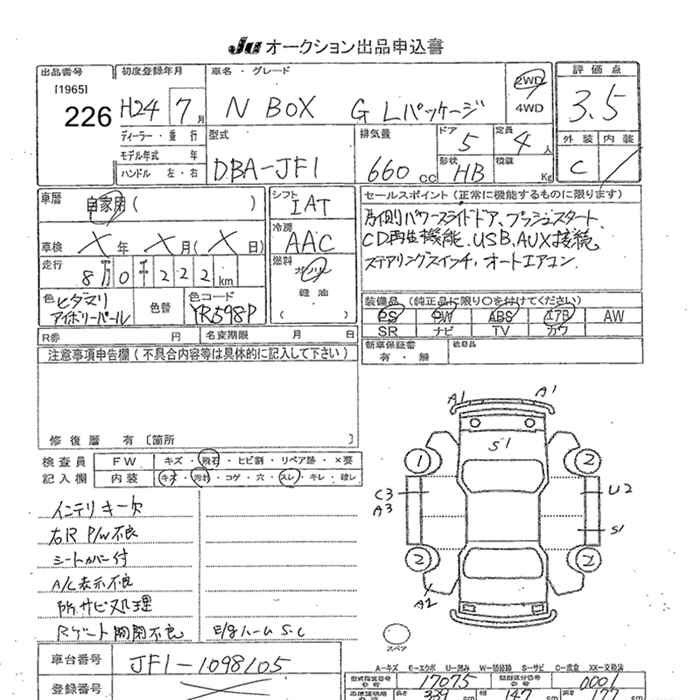 Ju オークション出品申込書
出品番号 初度登録年月 車名・グレード 2WD 評価点
[1965]
226 H24 7月 N BOX G Lパッケージ 4WD 3.5
ディーラー・並行 型式 排気量 ドア 5 定員 4人 外装 内装
モデル年式 年 DBA-JF1 660cc 形状 HB 積載 Kg C
ハンドル 左・右
車歴 自家用( ) シフト IAT セールスポイント(正常に機能するものに限ります)
車検 X年 X月(X日) 冷房 AAC 片側パワースライドドア、プッシュスタート
走行 8万0千222km 燃料 ガソリン CD再生機能、USB、AUX接続、
軽油 ステアリングスイッチ・オートエアコン
色 ヒダマリアイボリーパール 色替 色コード YR598P
装備品(純正品に限り○を付けてください)
PS PW ABS エアB AW
SR ナビ TV カワ
R券 円 名変期限 月 日 新車保証書 有・無 後日品
注意事項申告欄(不具合内容等は具体的に記入して下さい)
修復歴 有〔箇所 〕
検査員 FW キズ・飛石・ヒビ割・リペア跡・×要
記入欄 内装 キズ・汚れ・コゲ・穴・スレ・キレ・破レ
インテリキー欠
右R P/W不良
シートカバー付
A/C表示不良
所サビ処理
Rゲート開閉不良 E/gハームS・C
A1 A1
S1
1 2
C3 U2
A3 S1
2 2
A2
スペア
A-キズ E-エクボ U-凹み W-補修跡 S-サビ C-腐食 XX-交換済
車台番号 JF1-1098105
型式指定番号 17075 類別区分番号 0001
登録番号 長さ 339cm 幅 147cm 高さ 177cm